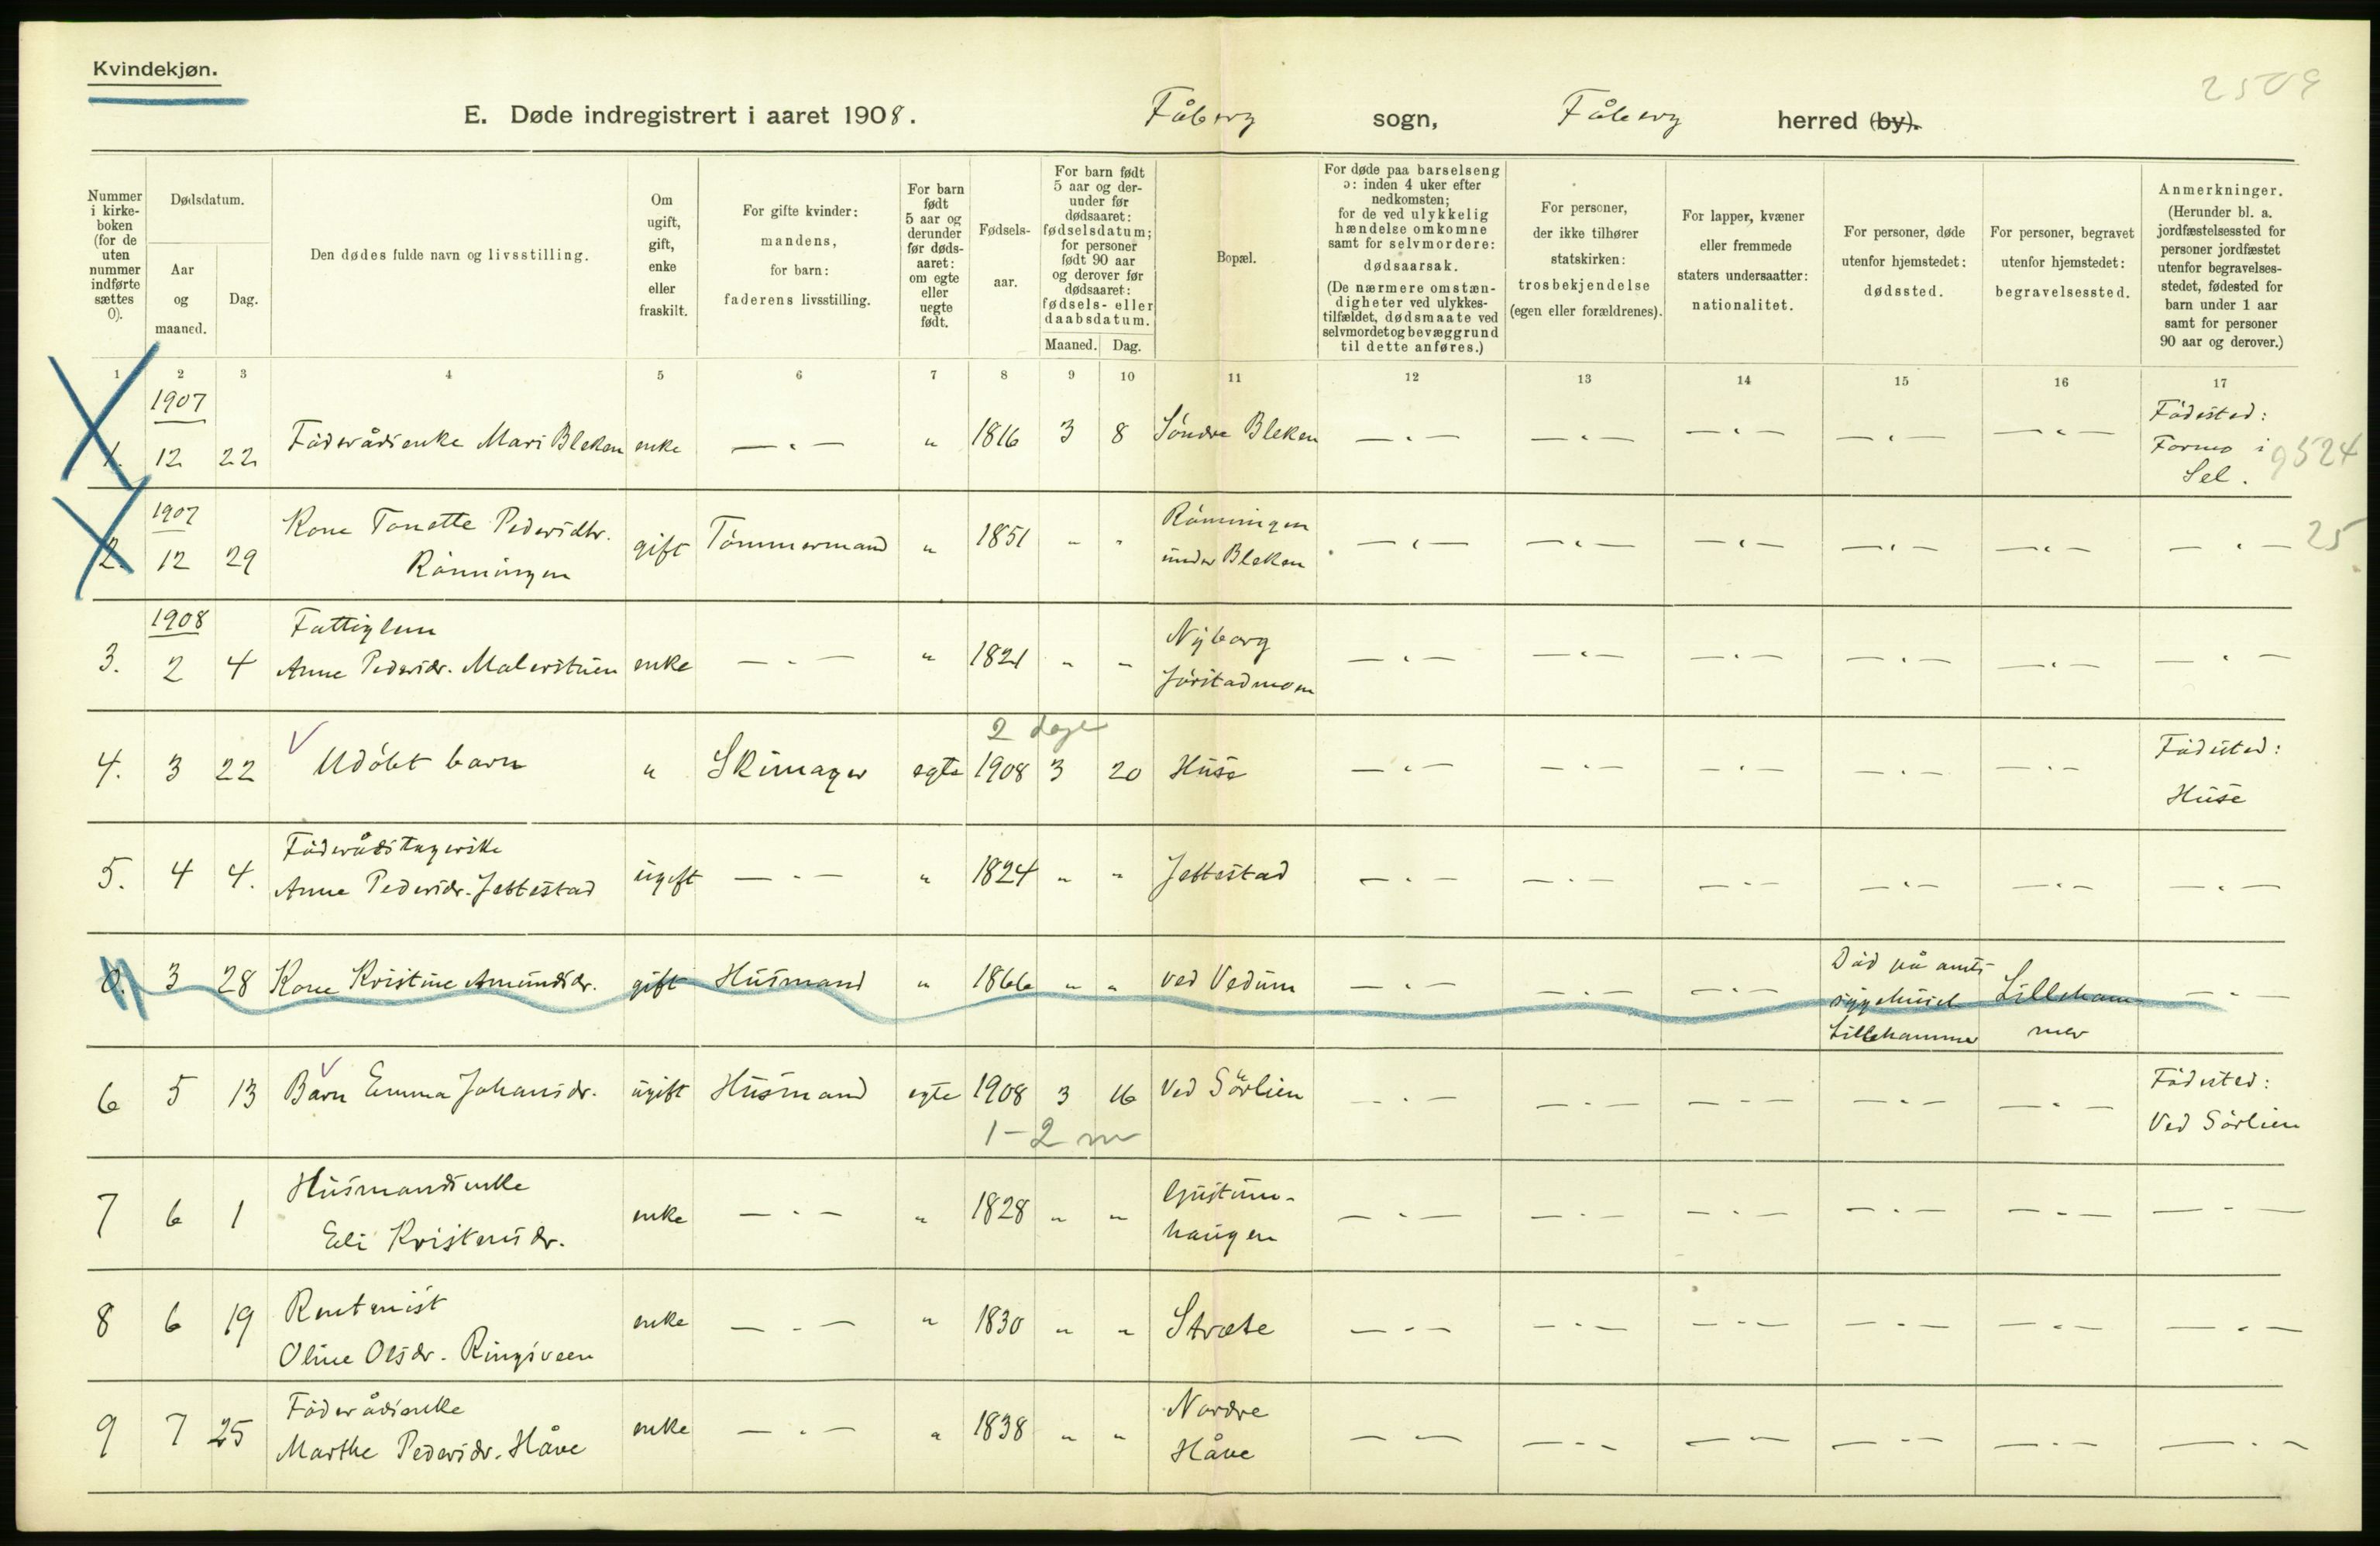 Kvindekjøn.
2509
E. Døde indregistrert i aaret 1908. Fåberg sogn, Fåberg herred (by).
Nummer i kirkeboken (for de uten nummer indførte sættes 0).
Dødsdatum.
Aar og maaned.
Dag.
Den dødes fulde navn og livsstilling.
Om ugift, gift, enke eller fraskilt.
For gifte kvinder: mandens, for barn: faderens livsstilling.
For barn født 5 aar og derunder før dødsaaret: om egte eller uegte født.
Fødselsaar.
For barn født 5 aar og derunder før dødsaaret: fødselsdatum; for personer født 90 aar og derover før dødsaaret: fødsels- eller daabsdatum.
Maaned. Dag.
Bopæl.
For døde paa barselseng ɔ: inden 4 uker efter nedkomsten; for de ved ulykkelig hændelse omkomne samt for selvmordere: dødsaarsak.
(De nærmere omstændigheter ved ulykkestilfældet, dødsmaate ved selvmordet og bevæggrund til dette anføres.)
For personer, der ikke tilhører statskirken: trosbekjendelse (egen eller forældrenes).
For lapper, kvæner eller fremmede staters undersaatter: nationalitet.
For personer, døde utenfor hjemstedet: dødssted.
For personer, begravet utenfor hjemstedet: begravelsessted.
Anmerkninger.
(Herunder bl. a. jordfæstelsessted for personer jordfæstet utenfor begravelsesstedet, fødested for barn under 1 aar samt for personer 90 aar og derover.)
1 2 3 4 5 6 7 8 9 10 11 12 13 14 15 16 17
1907
1. 12 22 Föderådsenke Mari Bleken enke — . — " 1816 3 8 Söndre Bleken — . — — . — — . — — . — — . — Födested: Formo i Sel. 9524
1907
2. 12 29 Kone Tonette Pedersdtr. Rönningen gift Tömmermand " 1851 " " Rönningen under Bleken — . — — . — — . — — . — — . — — . — 25
1908
3. 2 4 Fattiglem Anne Pedersdr. Malerstuen enke — . — " 1821 " " Nyborg Jörstadmoen — . — — . — — . — — . — — . — — . —
2 dage
4. 3 22 Udöbt barn " Skimager egte 1908 3 20 Huse — . — — . — — . — — . — — . — Födested: Huse
5. 4 4. Föderådstagerske Anne Pedersdr. Jettestad ugift — . — " 1824 " " Jettestad — . — — . — — . — — . — — . — — . —
0. 3 28 Kone Kristine Amundsdr. gift Husmand " 1866 " " ved Vedum — . — — . — — . — Död på amtssygehuset Lillehammer Lillehammer — . —
6 5 13 Barn Emma Johansdr. ugift Husmand egte 1908 3 16 Ved Sörlien — . — — . — — . — — . — — . — Födested: Ved Sörlien
1-2 m
7 6 1 Husmandsenke Eli Kristensdr. enke — . — " 1828 " " haugen — . — — . — — . — — . — — . — — . —
8 6 19 Rentenist Oline Olsdr. Ringsveen enke — . — " 1830 " " Stræte — . — — . — — . — — . — — . — — . —
9 7 25 Föderådsenke Marthe Pedersdr. Håve enke — . — " 1838 " " Nordre Håve — — — . — — . — — . — — . — — . —